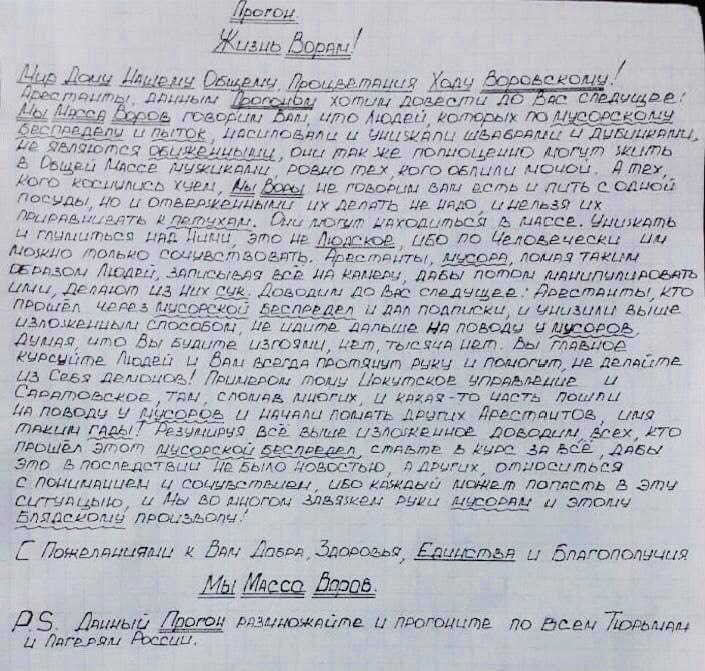 Прогон.
Жизнь Ворам!
Мир Дому Нашему Общему, Процветания Ходу Воровскому!
Арестанты, данным Прогоном хотим довести до Вас следущее:
Мы Масса Воров говорим Вам, что Людей, которых по мусорскому
беспределу и пыток, насиловали и унижали швабрами и дубинками,
не являются обиженными, они так же полноценно могут жить
в Общей Массе мужиками, ровно тех, кого облили мочой. А тех,
кого коснулись хуем, Мы Воры не говорим вам есть и пить с одной
посуды, но и отверженными их делать не надо, и нельзя их
приравнивать к петухам. Они могут находиться в массе. Унижать
и глумиться над Ними, это не Людское, ибо по Человечески им
можно только сочувствовать. Арестанты, мусора, ломая таким
образом Людей, записывая всё на камеру, дабы потом манипулировать
ими, делают из них сук. Доводим до Вас следущее: Арестанты, кто
прошёл через мусорской беспредел и дал подписки, и унизили выше
изложенным способом, не идите дальше на поводу у мусоров,
думая, что Вы будите изгоями, нет, тысяча нет. Вы главное
курсуйте Людей и Вам всегда протянут руку и помогут, не делайте
из Себя демонов! Примером тому Иркутское управление и
Саратовское, там, сломав многих, и какая-то часть пошли
на поводу у мусоров и начали ломать других Арестантов, имя
таким гады! Резумируя всё выше изложенное доводим, всех, кто
прошёл этот мусорской беспредел, ставьте в курс за всё, дабы
это в последствии не было новостью, а других, относиться
с пониманием и сочувствием, ибо каждый может попасть в эту
ситуацыю, и Мы во многом завяжем руки мусорам и этому
блядскому произволу!
С Пожеланиями к Вам Добра, Здоровья, Единства и Благополучия
Мы Масса Воров.
P.S. Данный Прогон размножайте и прогоните по всем Тюрьмам
и Лагерям России.